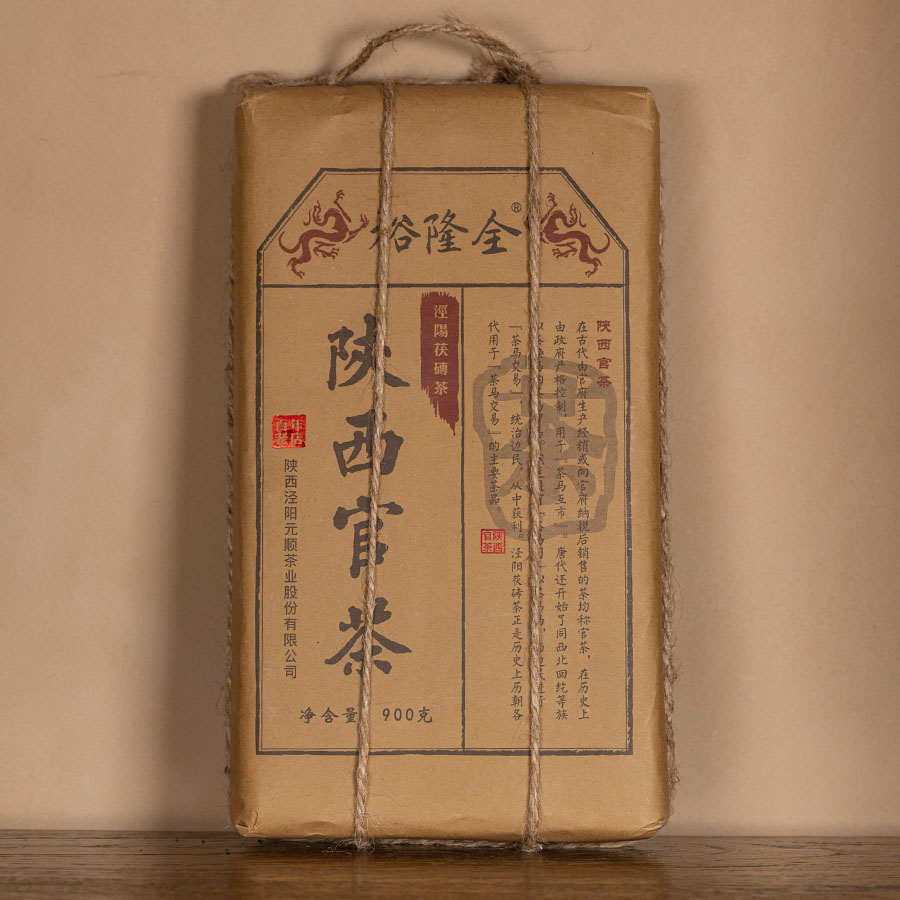 裕隆全®
陕西官茶
涇陽茯磚茶
陕西泾阳元顺茶业股份有限公司
净含量 900克
陕西官茶
在古代由官府生产经销或向官府纳税后销售的茶均称官茶，在历史上
由政府严格控制，用于「茶马互市」。唐代还开始了同西北回纥等族
「茶马交易」，统治边民，从中获利。泾阳茯砖茶正是历史上历朝各
代用于「茶马交易」的主要茶品。
陕西官茶